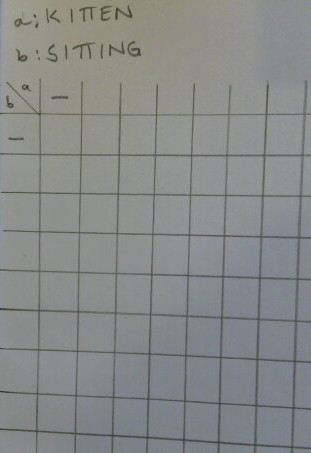 a: KITTEN
b: SITTING
a —
b
—